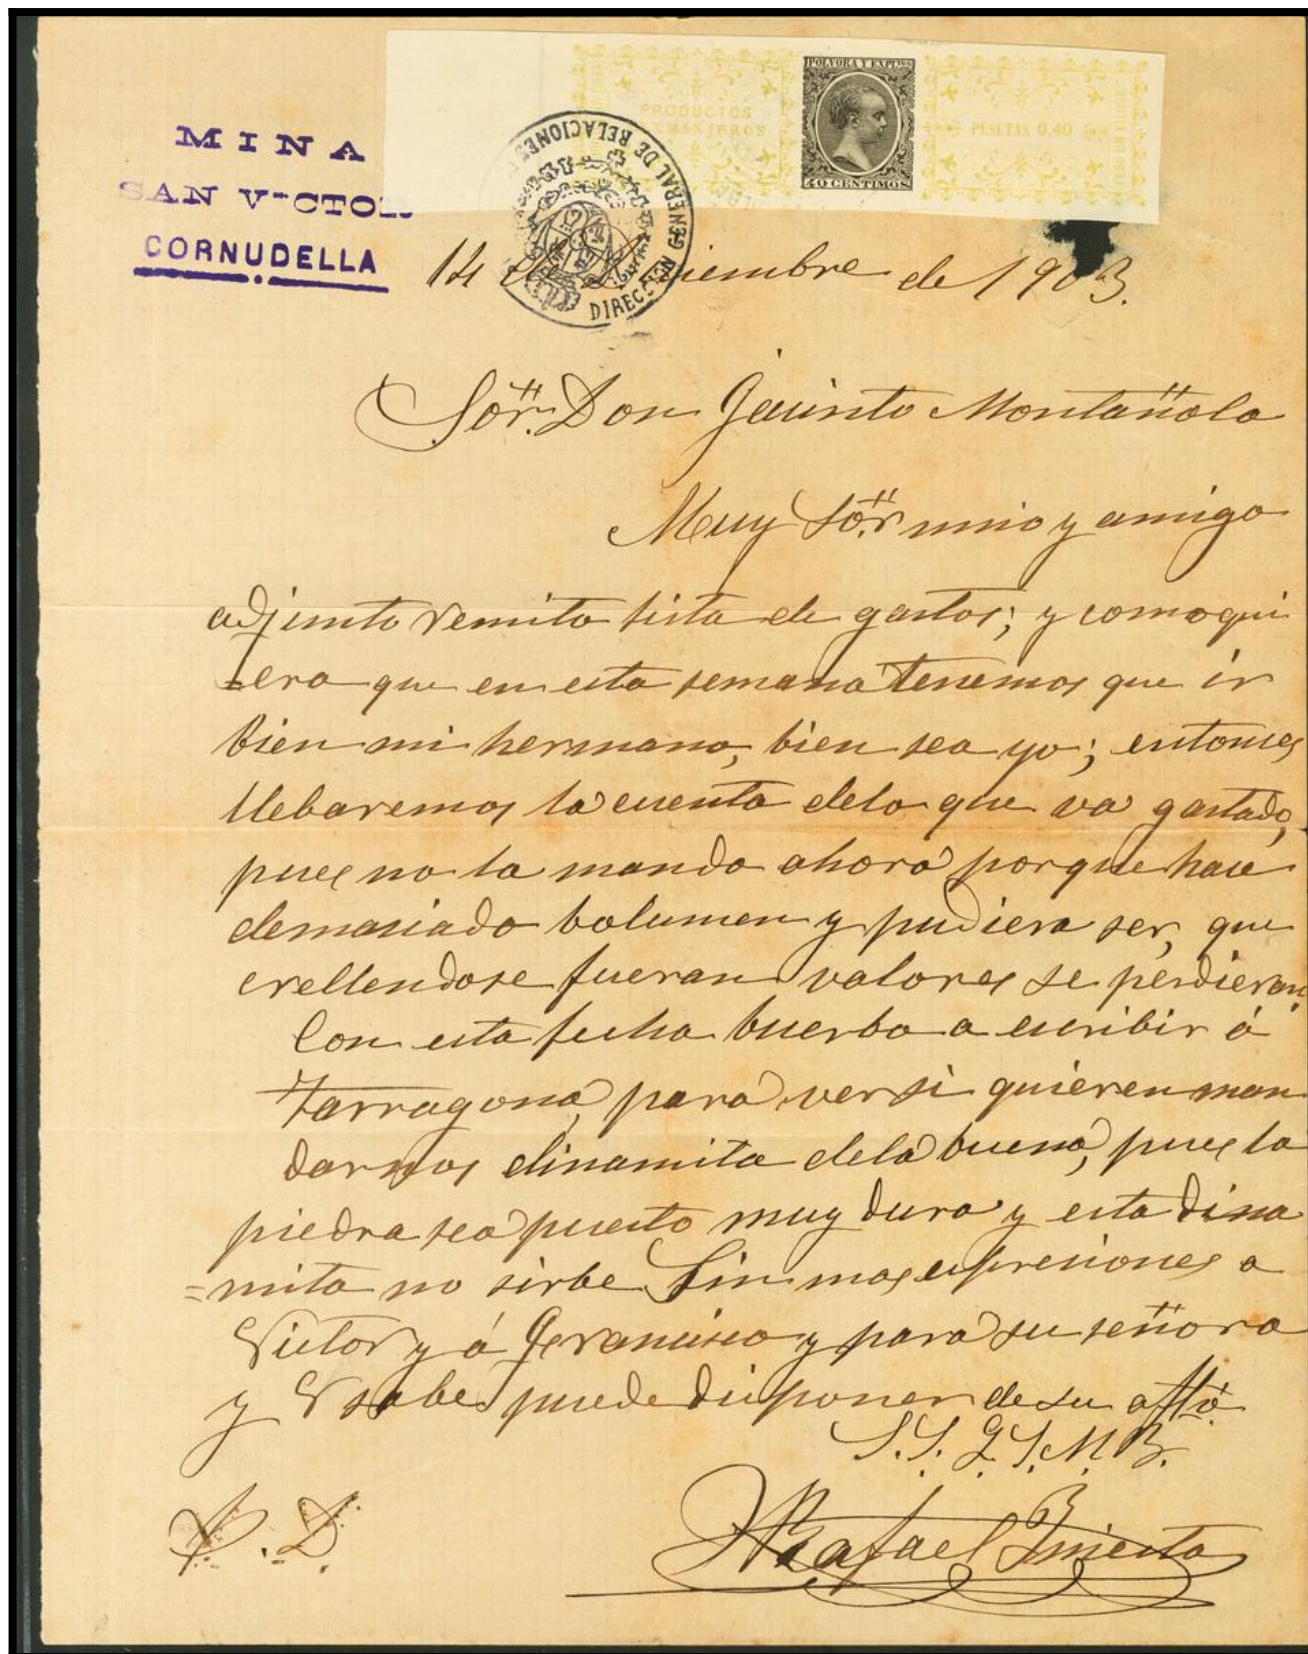 MINA
SAN VICTOR
CORNUDELLA
POLVORA Y EXPLVOS
PRODUCTOS
PESETAS 0,40
40 CENTIMOS
DIRECCION GENERAL DE RELACIONES
14 de Diciembre de 1903.
Sör. Don Jacinto Montañola
Muy Sör mio y amigo
adjunto remito lista de gastos; y como qui
sera que en esta semana tenemos que ir
bien mi hermano, bien sea yo; entonces
llebaremos la cuenta delo que va gastado,
pues no la mando ahora porque hace
demasiado bolumen y pudiera ser, que
crellendose fueran valores se perdieran.
Con esta fecha buerbo a escribir á
Tarragona, para ver si quieren man
darnos dinamita dela buena, pues la
piedra sea puesto muy dura y esta dina
=mita no sirbe Sin mas espresiones a
Victor y á Francisco y para su señora
y V sabe puede disponer de su affmo
S.S.Q.S.M.B.
Rafael
P.D.